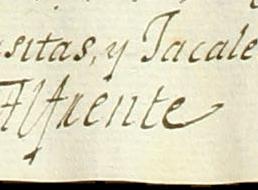 sitas, y Jacale
Alfrente